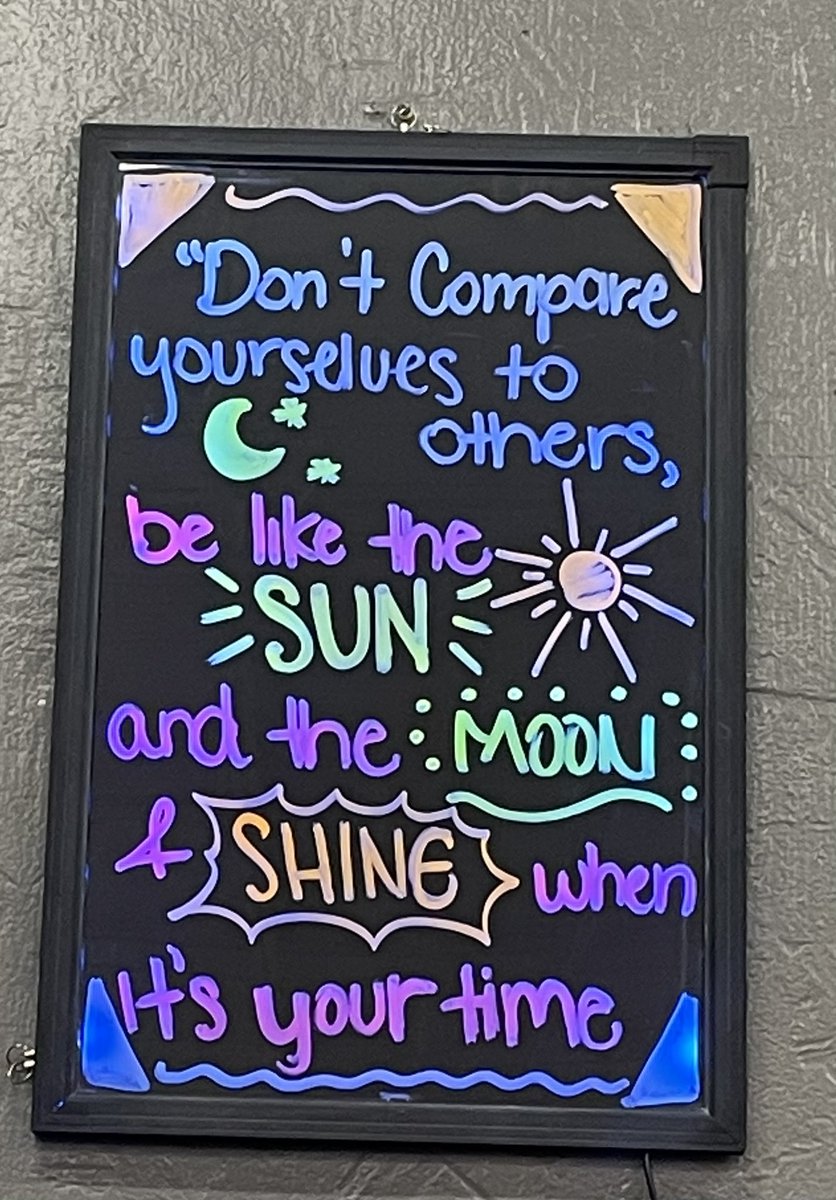 "Don't Compare
yourselves to
others,
be like the
SUN
and the MOON
& SHINE when
It's your time